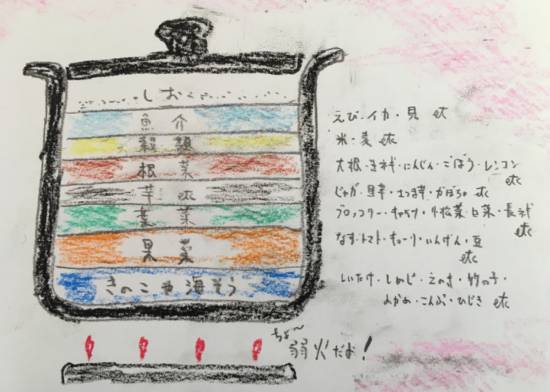 しお
魚介
穀類
根菜
芋 etc
葉菜
果菜
きのこ や 海そう
えび・イカ・貝 etc
米・麦 etc
大根・玉ネギ・にんじん・ごぼう・レンコン etc
じゃが・里芋・さつま芋・かぼちゃ etc
ブロッコリー・キャベツ・小松菜・白菜・長ネギ etc
なす・トマト・キューリ・いんげん・豆 etc
しいたけ・しめじ・えのき・竹の子・
わかめ・こんぶ・ひじき etc
ちょ〜
弱火だよ!